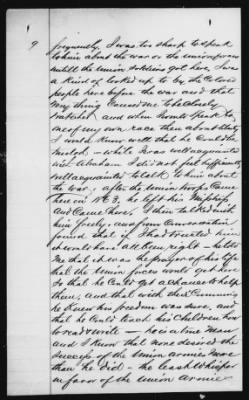 9
frequently, I was too sharp to speak
to him about the war or the union forces
untill the Union soldiers got here, I was
a kind of looked up to by the Colored
people here before the war and that
very thing caused me to be closely
watched and when I would speak to
one of my own race then about that
I would know well that he could be
trusted — while I was well acquainted
with Abraham I did not feel sufficiently
well acquainted to talk to him about
the war; after the Union troops came
here in 1863, he left his
and came here, I then talked with
him freely, and from conversation
found that if I had trusted him
it would have all been right — he told
me that it was the prayer of his life
that the Union forces would get here
so that he could get a chance to help
them, and that with their coming
he knew his freedom was sure, and
that he could teach his children how
to read & write — he is a true man
and I know that none desired the
success of the Union armies more
than he did — he
in favor of the Union armies